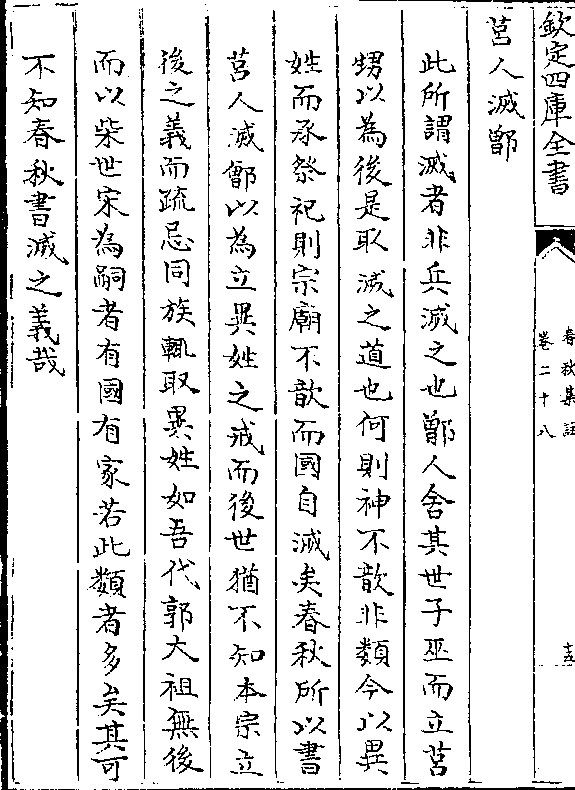 欽定四庫全書
春秋集註
卷二十八
十五
莒人滅鄫
此所謂滅者非兵滅之也鄫人舍其世子巫而立莒
甥以為後是取滅之道也何則神不歆非類今以異
姓而承祭祀則宗廟不歆而國自滅矣春秋所以書
莒人滅鄫以為立異姓之戒而後世猶不知本宗立
後之義而疏忌同族輒取異姓如吾代郭大祖無後
而以柴世宋為嗣者有國有家若此類者多矣其可
不知春秋書滅之義哉